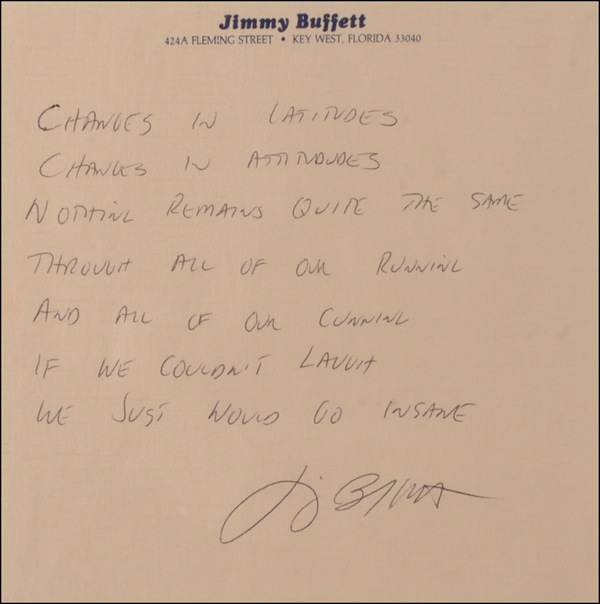 Jimmy Buffett
424A FLEMING STREET • KEY WEST, FLORIDA 33040
CHANGES IN LATITUDES
CHANGES IN ATTITUDUDES
NOTHING REMAINS QUITE THE SAME
THROUGH ALL OF OUR RUNNING
AND ALL OF OUR CUNNING
IF WE COULDN'T LAUGH
WE JUST WOULD GO INSANE